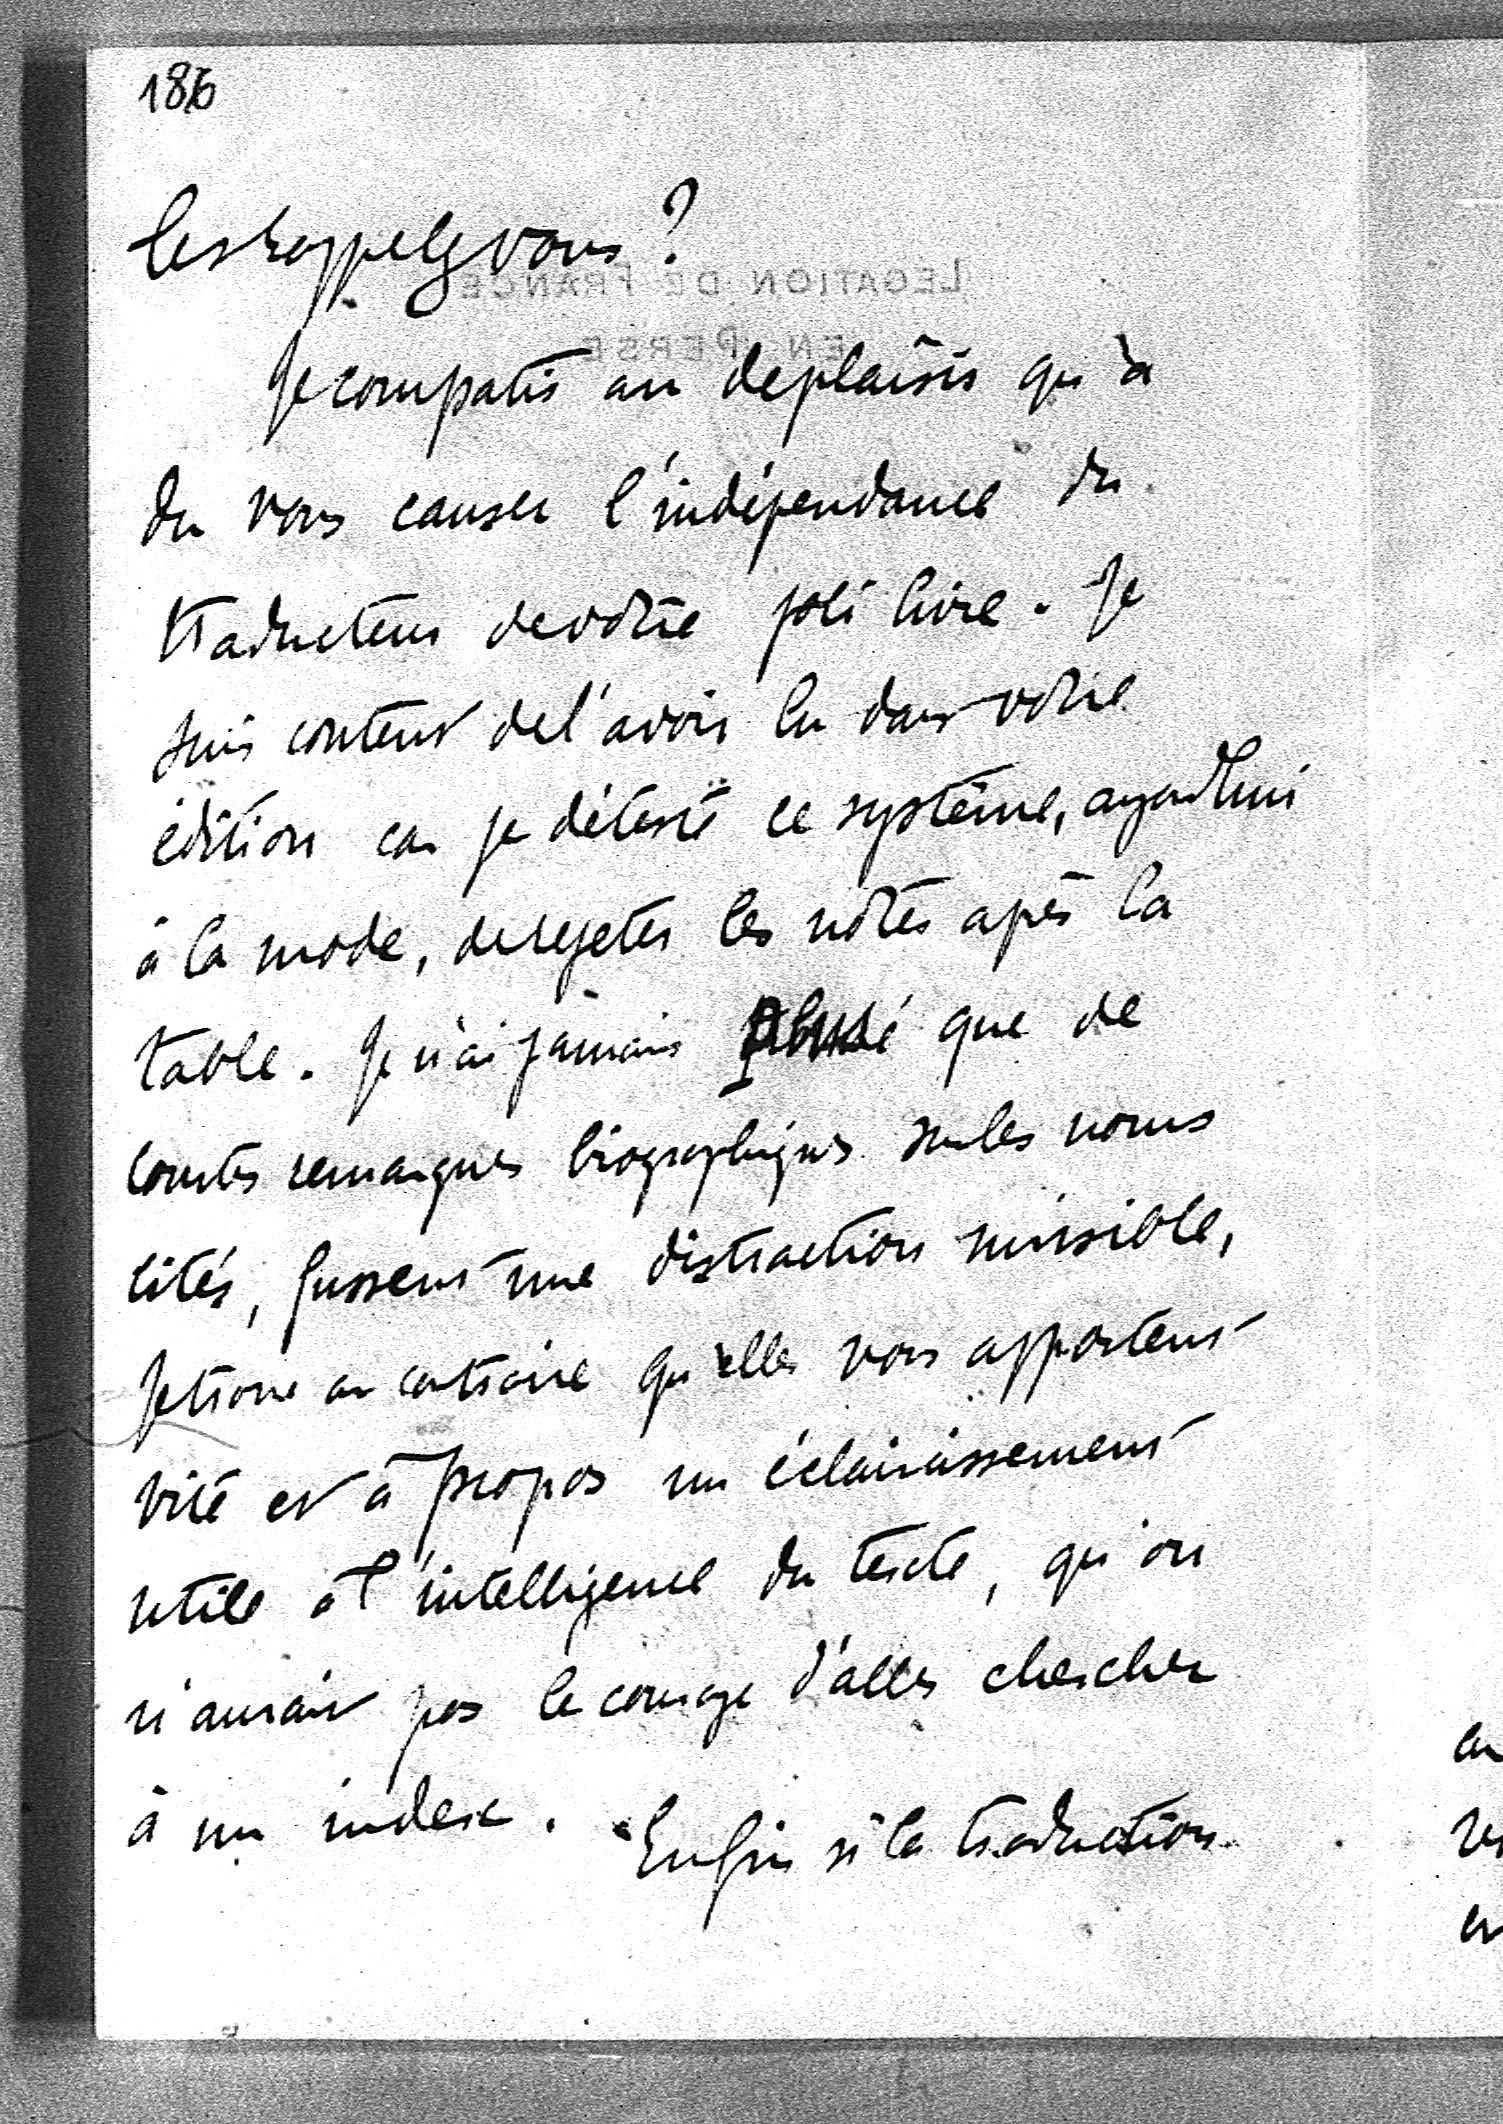 186
les rappelez vous ?
Je compatis au deplaisir qu'a
du vous causer l'indépendance du
traducteur de votre joli livre. Je
suis content de l'avoir lu dans votre
édition car je déteste ce système, aujourd'hui
à la mode, de rejeter les notes après la
table. Je n'ai jamais pensé que de
courtes remarques biographiques sur les noms
cités, fussent une distraction nuisible,
Je trouve au contraire qu'elles vous apportent
vite et à propos un éclaircissement
utile à l'intelligence du texte, qu'on
n'aurait pas le courage d'aller chercher
à un index. Enfin si la traduction
LÉGATION DE FRANCE
EN PERSE